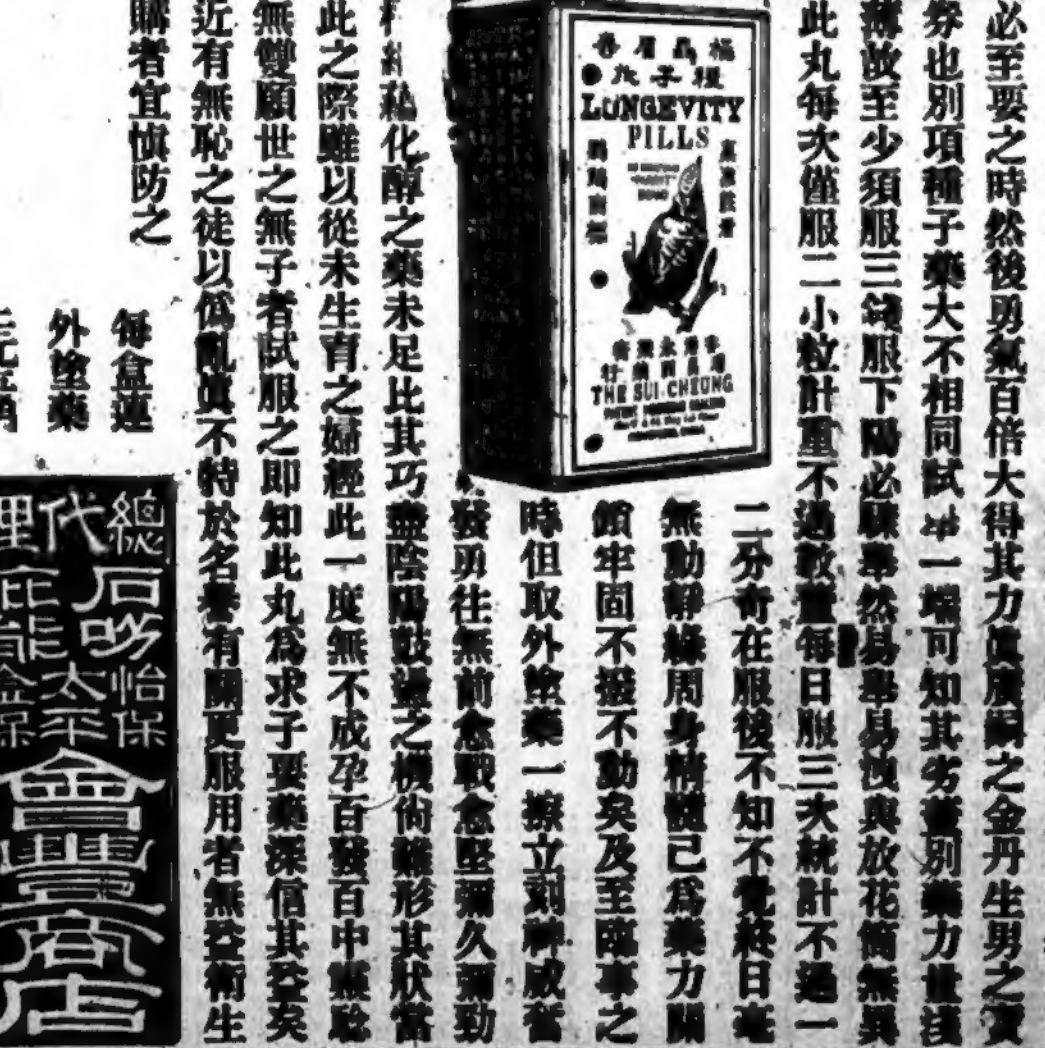 必至要之時然後勇氣百倍大得其力真廣嗣之金丹生男之寶
券也別項種子藥大不相同試舉一端可知其劣蓋別藥力世淺
薄故至少須服三錢服下陽必驟舉然易舉易洩與放花筒無異
此丸每次僅服二小粒計重不過數釐每日服三次統計不過一
二分奇在服後不知不覺終日毫
無動靜緣周身精髓已為藥力關
鎖牢固不搖不動矣及至臨事之
時但取外塗藥一擦立刻神威奮
發勇往無前愈戰愈堅彌久彌勁
化醇之藥未足比其巧盡陰陽鼓盪之機尚難形其狀當
此之際雖以從未生育之婦經此一度無不成孕百發百中靈驗
無雙願世之無子者試服之即知此丸為求子要藥深信其益矣
近有無恥之徒以偽亂真不特於名譽有關更服用者無益衛生
購者宜慎防之
每盒連
外塗藥
三元五角
LONGEVITY
PILLS
THE SUI-CHEUNG
總代理
石叻庇能
怡保太平金保
會豐商店